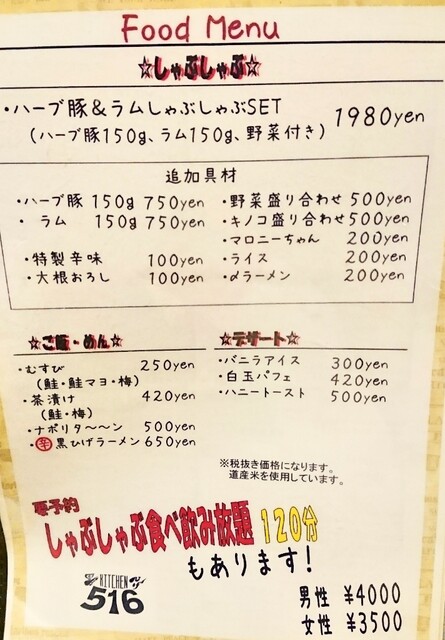 Food Menu
☆しゃぶしゃぶ☆
・ハーブ豚&ラムしゃぶしゃぶSET 1980yen
(ハーブ豚150g、ラム150g、野菜付き)
追加具材
・ハーブ豚 150g 750yen
・ラム 150g 750yen
・特製辛味 100yen
・大根おろし 100yen
・野菜盛り合わせ 500yen
・キノコ盛り合わせ 500yen
・マロニーちゃん 200yen
・ライス 200yen
・〆ラーメン 200yen
☆ご飯・めん☆
・むすび 250yen
(鮭・鮭マヨ・梅)
・茶漬け 420yen
(鮭・梅)
・ナポリタ〜〜ン 500yen
・㊛黒ひげラーメン 650yen
☆デザート☆
・バニラアイス 300yen
・白玉パフェ 420yen
・ハニートースト 500yen
※税抜き価格になります。
道産米を使用しています。
要予約
しゃぶしゃぶ食べ飲み放題 120分
もあります!
KITCHEN
516
男性 ¥4000
女性 ¥3500